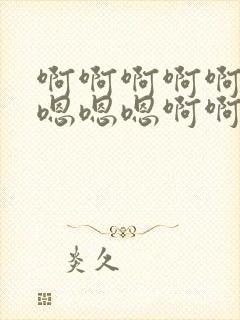 啊啊啊啊啊
嗯嗯嗯啊啊
炎久